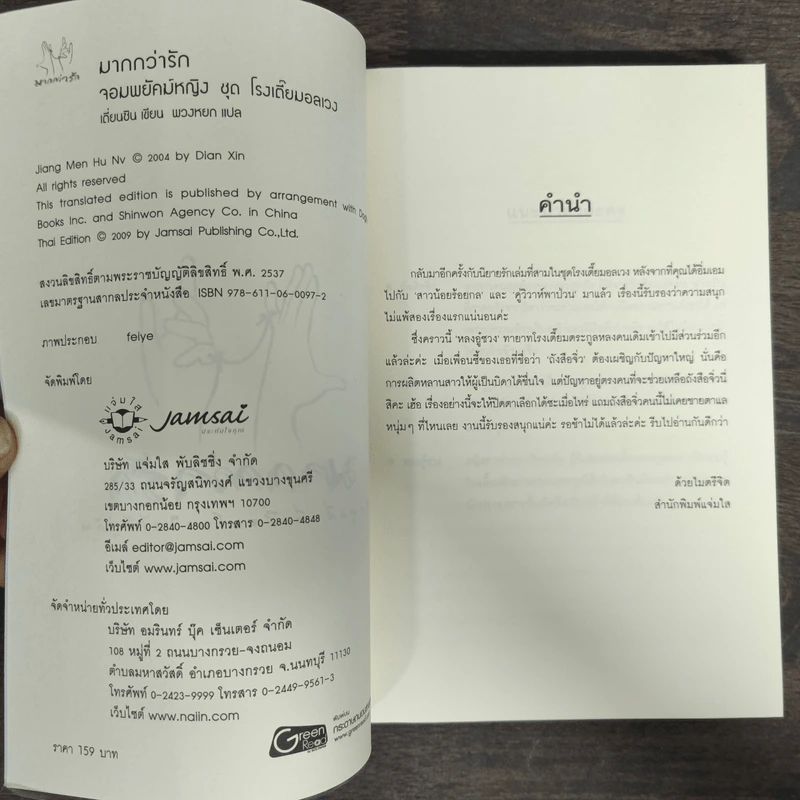 มากกว่ารัก
มากกว่ารัก
จอมพยัคฆ์หญิง ชุด โรงเตี๊ยมอลเวง
เตี่ยนซิน เขียน พวงหยก แปล
Jiang Men Hu Nv © 2004 by Dian Xin
All rights reserved
This translated edition is published by arrangement with
Books Inc. and Shinwon Agency Co. in China
Thai Edition © 2009 by Jamsai Publishing Co.,Ltd.
สงวนลิขสิทธิ์ตามพระราชบัญญัติลิขสิทธิ์ พ.ศ. 2537
เลขมาตรฐานสากลประจำหนังสือ ISBN 978-611-06-0097-2
ภาพประกอบ feiye
จัดพิมพ์โดย
แจ่มใส
Jamsai
Jamsai
บริษัท แจ่มใส พับลิชชิ่ง จำกัด
285/33 ถนนจรัญสนิทวงศ์ แขวงบางขุนศรี
เขตบางกอกน้อย กรุงเทพฯ 10700
โทรศัพท์ 0-2840-4800 โทรสาร 0-2840-4848
อีเมล์ editor@jamsai.com
เว็บไซต์ www.jamsai.com
จัดจำหน่ายทั่วประเทศโดย
บริษัท อมรินทร์ บุ๊ค เซ็นเตอร์ จำกัด
108 หมู่ที่ 2 ถนนบางกรวย-จงถนอม
ตำบลมหาสวัสดิ์ อำเภอบางกรวย จ.นนทบุรี 11130
โทรศัพท์ 0-2423-9999 โทรสาร 0-2449-9561-3
เว็บไซต์ www.naiin.com
ราคา 159 บาท
Green
Read
คำนำ
กลับมาอีกครั้งกับนิยายรักเล่มที่สามในชุดโรงเตี๊ยมอลเวง หลังจากที่คุณได้อิ่มเอม
ไปกับ 'สาวน้อยร้อยกล' และ 'คู่วิวาห์พาป่วน' มาแล้ว เรื่องนี้รับรองว่าความสนุก
ไม่แพ้สองเรื่องแรกแน่นอนค่ะ
ซึ่งคราวนี้ 'หลงอู๋ซวง' ทายาทโรงเตี๊ยมตระกูลหลงคนเดิมเข้าไปมีส่วนร่วมอีก
แล้วล่ะค่ะ เมื่อเพื่อนซี้ของเธอที่ชื่อว่า 'ถังสือจิ่ว' ต้องเผชิญกับปัญหาใหญ่ นั่นคือ
การผลิตหลานสาวให้ผู้เป็นบิดาได้ชื่นใจ แต่ปัญหาอยู่ตรงคนที่จะช่วยเหลือถังสือจิ่วนี่
สิคะ เฮ้อ เรื่องอย่างนี้จะให้ปิดตาเลือกได้ซะเมื่อไหร่ แถมถังสือจิ่วคนนี้ไม่เคยชายตาแล
หนุ่มๆ ที่ไหนเลย งานนี้รับรองสนุกแน่ค่ะ รอช้าไม่ได้แล้วล่ะค่ะ รีบไปอ่านกันดีกว่า
ด้วยไมตรีจิต
สำนักพิมพ์แจ่มใส